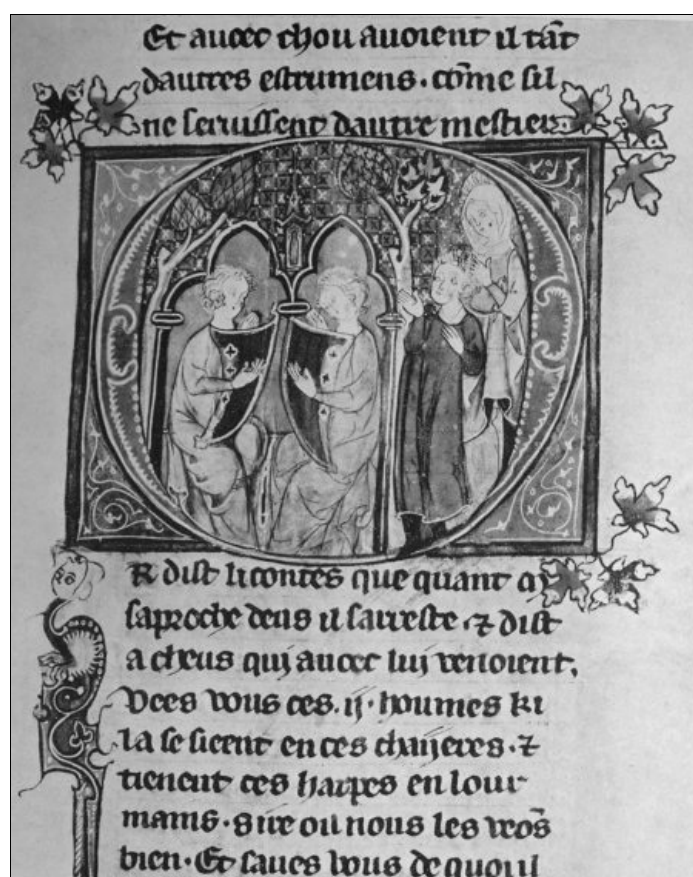 Et auoec chou auoient il tāt
dautres estrumens · cōme sil
ne seruissent dautre mestier.
OR dist li contes que quant
saproche deus il sarreste · ⁊ dist
a cheus qui auoec lui venoient.
Vees vous ces . ij . houmes ki
la se sieent en ces chaijeres · ⁊
tienent ces harpes en lour
mains · sire oil nous les veōs
bien · Et saues vous de quoi il